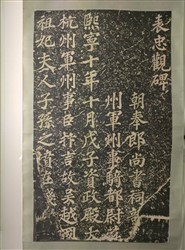 表忠觀碑
朝奉郎尚書祠部
州軍州事騎都尉
熙寧十年十月戊子資政殿大
杭州軍州事臣抃言故吳越國
祖妃夫人子孫之墳在錢